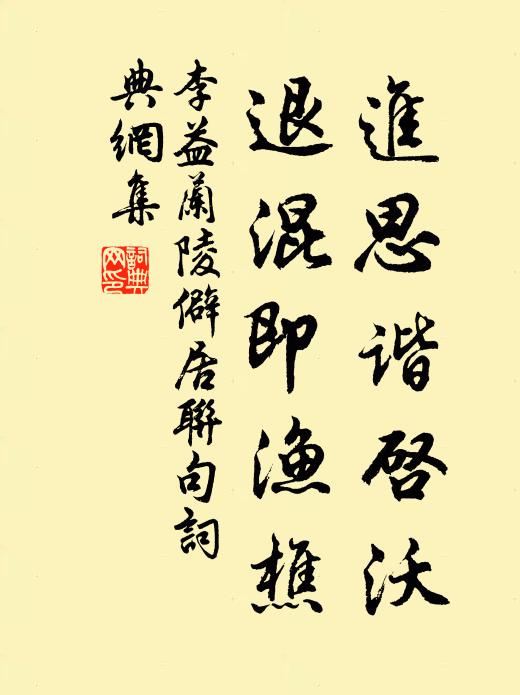 進思諧啓沃
退混即漁樵
李益蘭陵僻居聯句詞
典網集
詞典網印